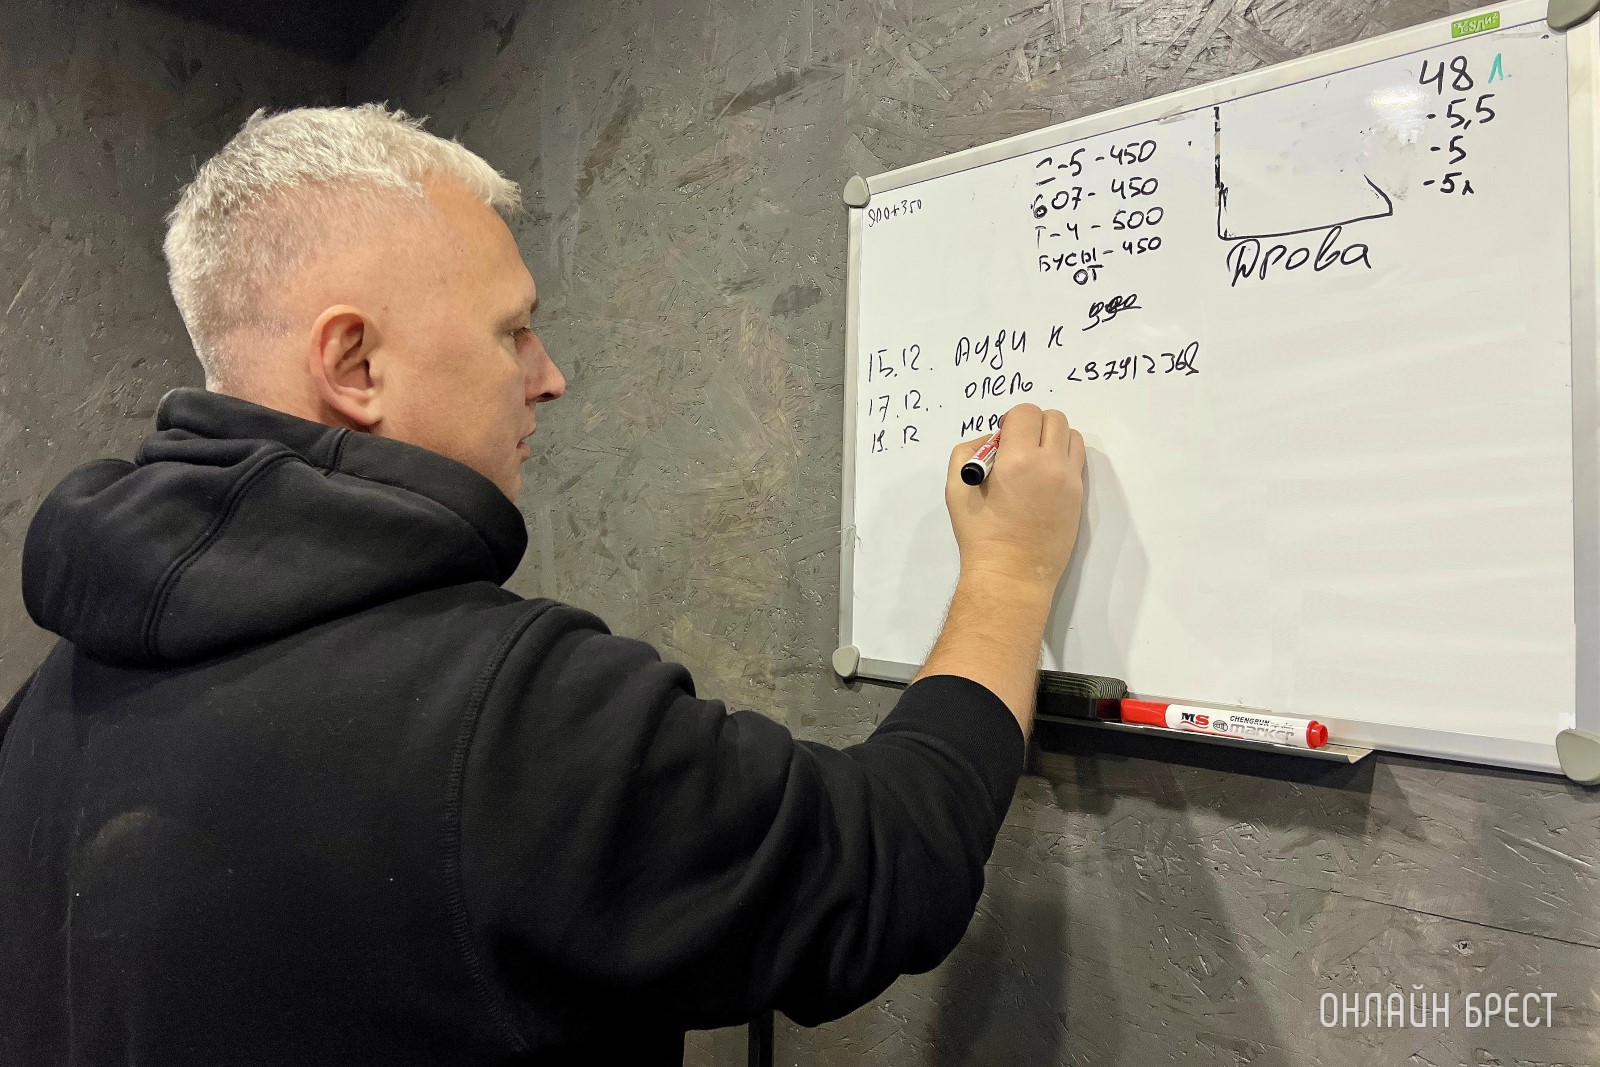 48 л.
-5,5
-5
-5л
-5 -450
607 - 450
Т-4 - 500
БУСЫ - 450
ОТ
800+350
Дрова
15.12. Ауди к
17.12.. опель.
19.12 мерс
MS CHENGRUN
marker
ОНЛАЙН БРЕСТ